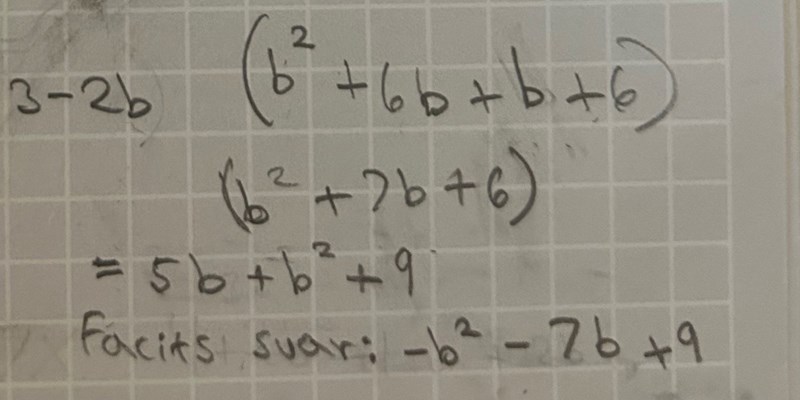 3-2b (b²+6b+b+6)
(b²+7b+6)
= 5b+b²+9
Facits svar: -b²-7b+9